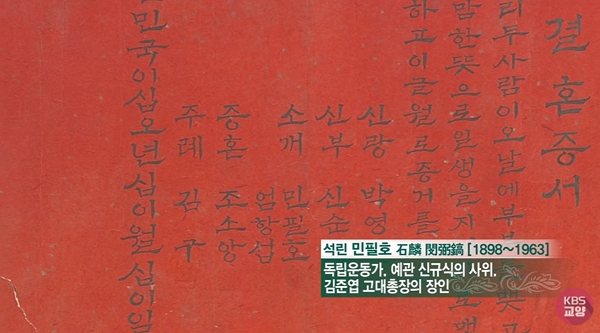 결혼증서
리두사람이오날에부
맘한뜻으로일생을지
하고이글월로증거를
신광 박영
신부 신순
소개 민필호
엄항섭
증혼 조소앙
주례 김구
민국이십오년십이월십이일
석린 민필호 石麟 閔弼鎬 [1898~1963]
독립운동가. 예관 신규식의 사위.
김준엽 고대총장의 장인
KBS
교양